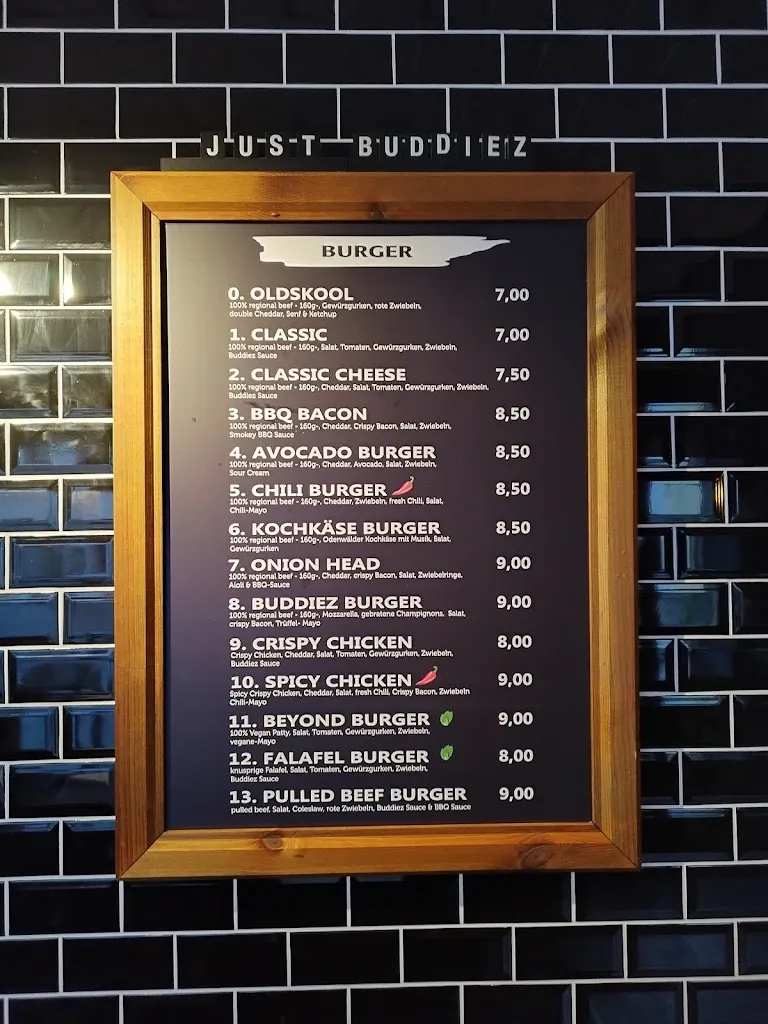 JUST BUDDIEZ
BURGER
0. OLDSKOOL 7,00
100% regional beef - 160g-, Gewürzgurken, rote Zwiebeln,
double Cheddar, Senf & Ketchup
1. CLASSIC 7,00
100% regional beef - 160g-, Salat, Tomaten, Gewürzgurken, Zwiebeln,
Buddiez Sauce
2. CLASSIC CHEESE 7,50
100% regional beef - 160g-, Cheddar, Salat, Tomaten, Gewürzgurken, Zwiebeln,
Buddiez Sauce
3. BBQ BACON 8,50
100% regional beef - 160g-, Cheddar, Crispy Bacon, Salat, Zwiebeln,
Smokey BBQ Sauce
4. AVOCADO BURGER 8,50
100% regional beef - 160g-, Cheddar, Avocado, Salat, Zwiebeln,
Sour Cream
5. CHILI BURGER 8,50
100% regional beef - 160g-, Cheddar, Zwiebeln, fresh Chili, Salat,
Chili-Mayo
6. KOCHKÄSE BURGER 8,50
100% regional beef - 160g-, Odenwälder Kochkäse mit Musik, Salat,
Gewürzgurken
7. ONION HEAD 9,00
100% regional beef - 160g-, Cheddar, crispy Bacon, Salat, Zwiebelringe,
Aioli & BBQ-Sauce
8. BUDDIEZ BURGER 9,00
100% regional beef - 160g-, Mozzarella, gebratene Champignons. Salat,
crispy Bacon, Trüffel- Mayo
9. CRISPY CHICKEN 8,00
Crispy Chicken, Cheddar, Salat, Tomaten, Gewürzgurken, Zwiebeln,
Buddiez Sauce
10. SPICY CHICKEN 9,00
Spicy Crispy Chicken, Cheddar, Salat, fresh Chili, Crispy Bacon, Zwiebeln
Chili-Mayo
11. BEYOND BURGER 9,00
100% Vegan Patty, Salat, Tomaten, Gewürzgurken, Zwiebeln,
vegane-Mayo
12. FALAFEL BURGER 8,00
knusprige Falafel, Salat, Tomaten, Gewürzgurken, Zwiebeln,
Buddiez Sauce
13. PULLED BEEF BURGER 9,00
pulled beef, Salat, Coleslaw, rote Zwiebeln, Buddiez Sauce & BBQ Sauce